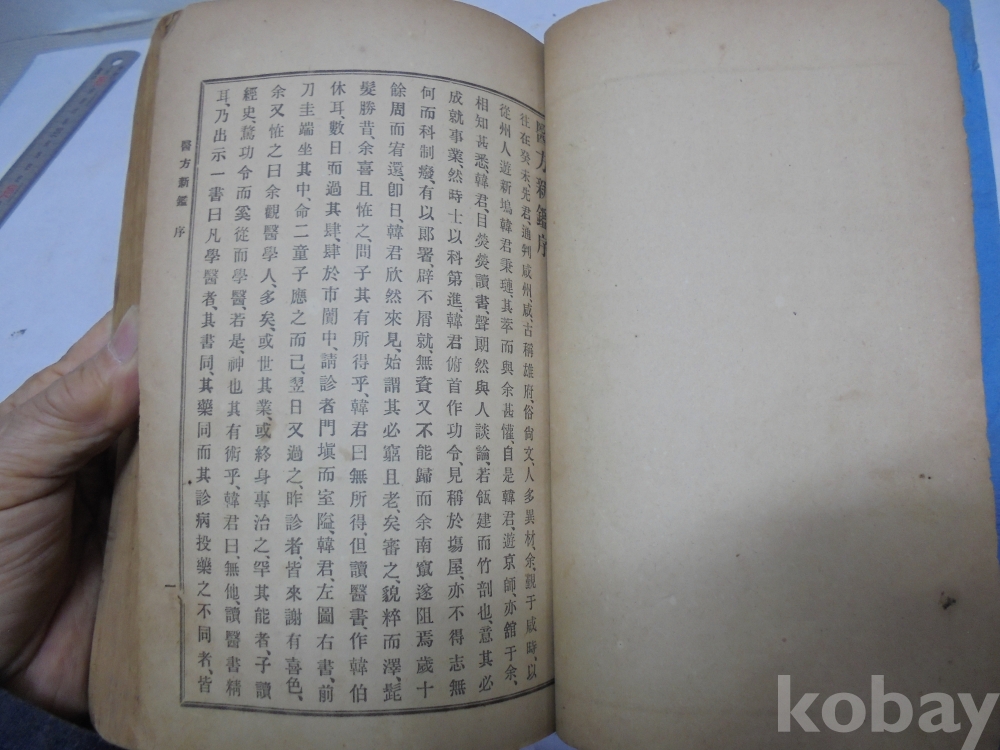 醫方新鑑序
往在癸未、先君、通判咸州、咸、古稱雄府、俗尙文、人多異材、余、覲于咸時、以
從州人遊新塢韓君秉璉、其萃而與余甚懽、自是韓君、遊京師、亦舘于余、
相知甚悉、韓君、目熒熒讀書、聲朗然與人談論、若瓴建而竹剖也、意其必
成就事業、然時士以科第進、韓君俯首作功令、見稱於塲屋、亦不得志無
何而科制廢、有以郞署、辟不屑就、無資又不能歸而余南竄遂阻焉歲十
餘周而宥還、卽日、韓君欣然來見、始謂其必窮且老、矣審之、貌粹而澤、髭
髮勝昔、余喜且怪之、問子其有所得乎、韓君曰無所得、但讀醫書、作韓伯
休耳、數日而過其肆、肆於市闤中、請診者門塡而室隘、韓君、左圖右書、前
刀圭端坐其中、命二童子應之而已、翌日又過之、昨診者、皆來謝有喜色、
余又怪之曰余觀醫學人、多矣、或世其業、或終身專治之、罕其能者、子讀
經史、騖功令而奚從而學醫、若是、神也其有術乎、韓君曰、無他、讀醫書精
耳、乃出示一書曰凡學醫者、其書同、其藥同而其診病投藥之不同者、皆
醫方新鑑 序
一
kobay